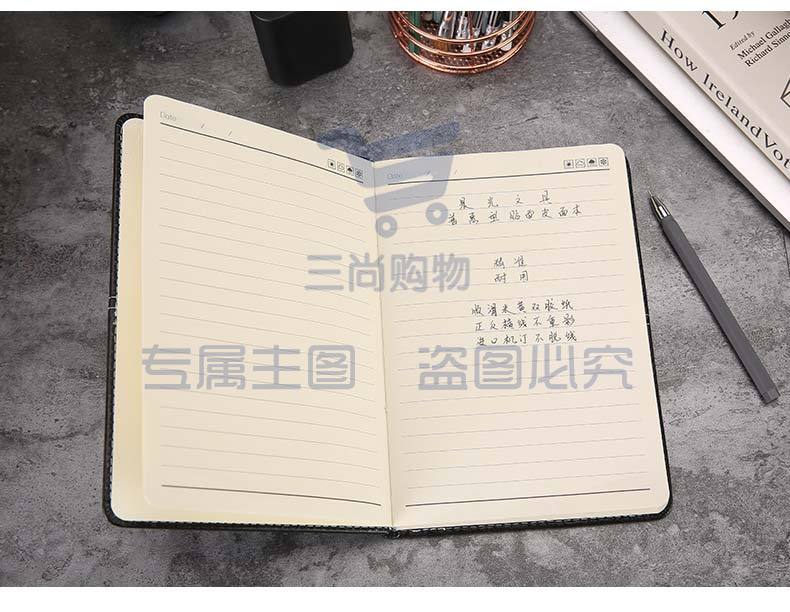 Edited by
Michael Gallagh
Richard Sinno
How IrelandVot
Date: / /
Date: / /
晨光文具
普惠型贴面皮面本
精准
耐用
顺滑米黄双胶纸
正反横线不重影
进口机订不脱线
三尚购物
专属主图 盗图必究